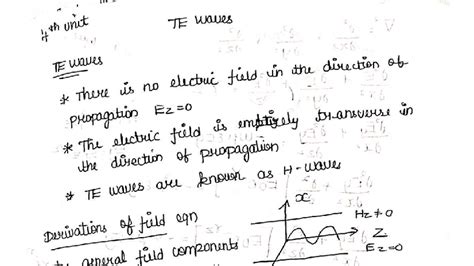 4th unit
TE waves
TE waves
* There is no electric field in the direction of
propagation Ez=0
* The electric field is entirely transverse in
the direction of propagation
* TE waves are known as H-waves
x
Hz≠0
Derivations of field eqn
Z
Ez=0
general field components